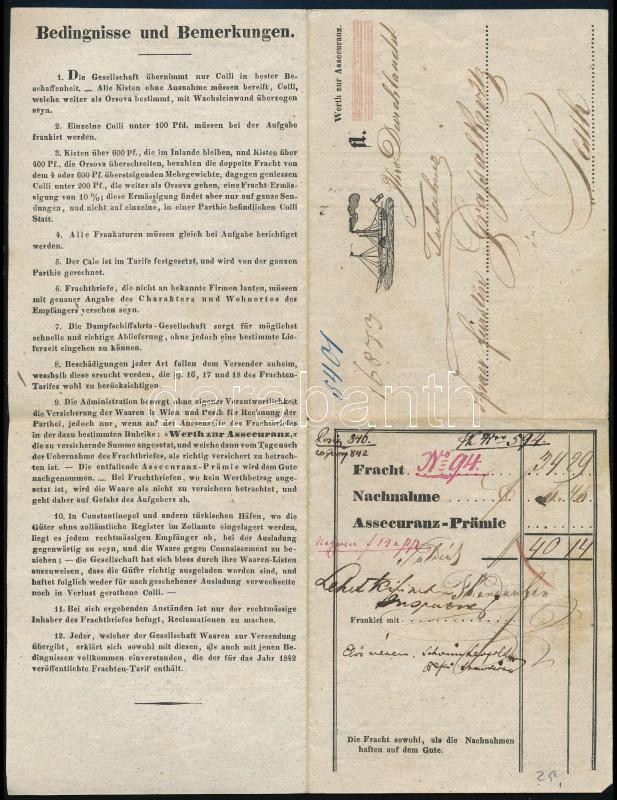 Bedingnisse und Bemerkungen.
1. Die Gesellschaft übernimmt nur Colli in bester Be-
schaffenheit. — Alle Kisten ohne Ausnahme müssen bereift, Colli,
welche weiter als Orsova bestimmt, mit Wachsleinwand überzogen
seyn.
2. Einzelne Colli unter 100 Pfd. müssen bei der Aufgabe
frankirt werden.
3. Kisten über 600 Pf., die im Inlande bleiben, und Kisten über
400 Pf., die Orsova überschreiten, bezahlen die doppelte Fracht von
dem 4 oder 600 Pf. übersteigenden Mehrgewichte, dagegen geniessen
Colli unter 200 Pf., die weiter als Orsova gehen, eine Fracht-Ermäs-
sigung von 10 %; diese Ermässigung findet aber nur auf ganze Sen-
dungen, und nicht auf einzelne, in einer Parthie befindlichen Colli
Statt.
4. Alle Frankaturen müssen gleich bei Aufgabe berichtiget
werden.
5. Der Calo ist im Tarife festgesetzt, und wird von der ganzen
Parthie gerechnet.
6. Frachtbriefe, die nicht an bekannte Firmen lauten, müssen
mit genauer Angabe des Charakters und Wohnortes des
Empfängers versehen seyn.
7. Die Dampfschiffahrts-Gesellschaft sorgt für möglichst
schnelle und richtige Ablieferung, ohne jedoch eine bestimmte Lie-
ferzeit eingehen zu können.
8. Beschädigungen jeder Art fallen dem Versender anheim,
wesshalb diese ersucht werden, die §§. 16, 17 und 18 des Frachten-
Tarifes wohl zu berücksichtigen.
9. Die Administration besorgt ohne eigener Verantwortlichkeit
die Versicherung der Waaren in Wien und Pesth für Rechnung der
Parthei, jedoch nur, wenn auf der Aussenseite des Frachtbriefes
in der dazu bestimmten Rubrike: »Werth zur Assecuranz,«
die zu versichernde Summe angesetzt, und welche dann vom Tage nach
der Uebernahme des Frachtbriefes, als richtig versichert zu betrach-
ten ist. — Die entfallende Assecuranz-Prämie wird dem Gute
nachgenommen. — Bei Frachtbriefen, wo kein Werthbetrag ange-
setzt ist, wird die Waare als nicht zu versichern betrachtet, und
geht daher auf Gefahr des Aufgebers ab.
10. In Constantinopel und andern türkischen Häfen, wo die
Güter ohne zollämtliche Register im Zollamte eingelagert werden,
liegt es jedem rechtmässigen Empfänger ob, bei der Ausladung
gegenwärtig zu seyn, und die Waare gegen Connaissement zu be-
ziehen; — die Gesellschaft hat sich bloss durch ihre Waaren-Listen
auszuweisen, dass die Güter richtig ausgeladen worden sind, und
haftet folglich weder für nachgeschehener Ausladung verwechselte
noch in Verlust gerathene Colli. —
11. Bei sich ergebenden Anständen ist nur der rechtmässige
Inhaber des Frachtbriefes befugt, Reclamationen zu machen.
12. Jeder, welcher der Gesellschaft Waaren zur Versendung
übergibt, erklärt sich sowohl mit diesen, als auch mit jenen Be-
dingnissen vollkommen einverstanden, die der für das Jahr 1842
veröffentlichte Frachten-Tarif enthält.
Werth zur Assecuranz.
fl.
Pesth
16873
darabanth
594
Fracht No 94. 34 29
Nachnahme
Assecuranz-Prämie
40 14
Frankirt mit
Die Fracht sowohl, als die Nachnahmen
haften auf dem Gute.